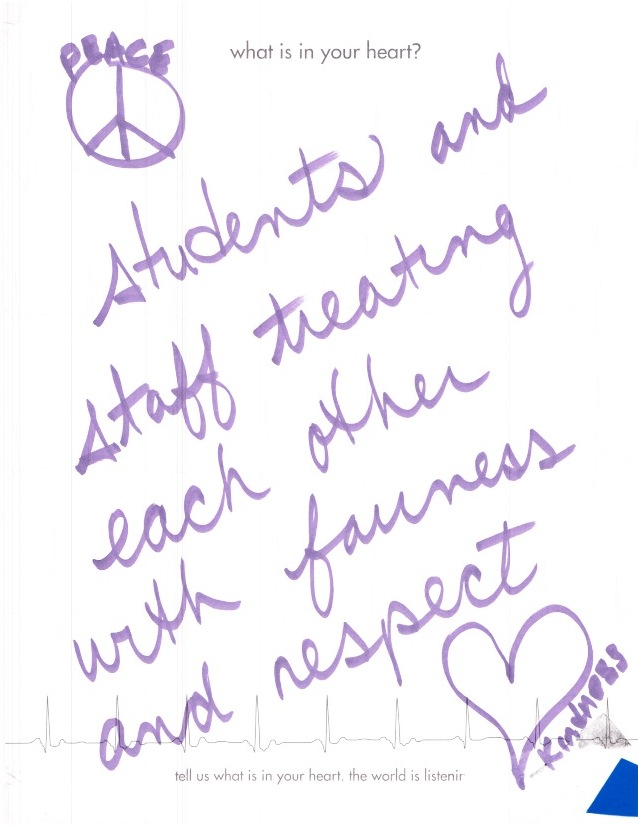 PEACE
what is in your heart?
students and
staff treating
each other
with fairness
and respect
kindness
tell us what is in your heart. the world is listenin